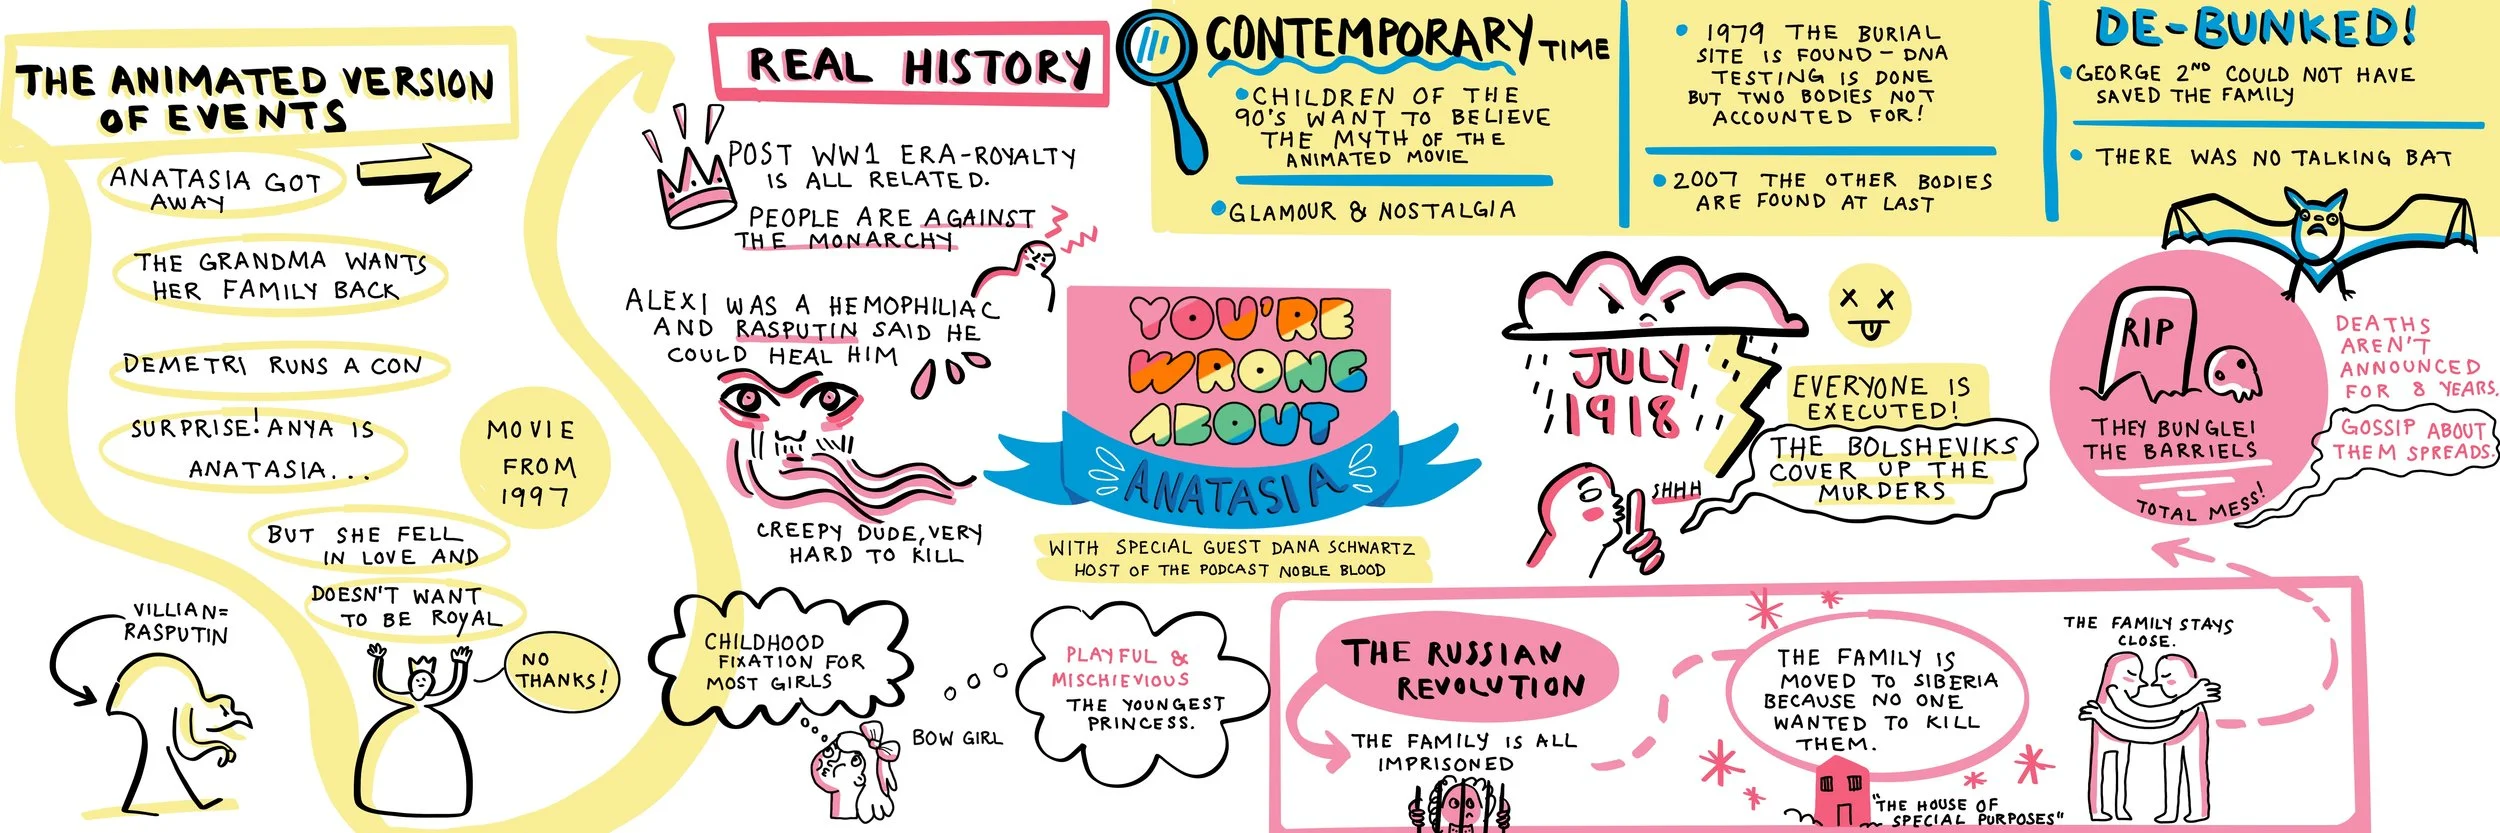 THE ANIMATED VERSION
OF EVENTS
ANATASIA GOT
AWAY
THE GRANDMA WANTS
HER FAMILY BACK
DEMETRI RUNS A CON
SURPRISE! ANYA IS
ANATASIA...
MOVIE
FROM
1997
BUT SHE FELL
IN LOVE AND
DOESN'T WANT
TO BE ROYAL
VILLIAN=
RASPUTIN
NO
THANKS!
REAL HISTORY
POST WW1 ERA-ROYALTY
IS ALL RELATED.
PEOPLE ARE AGAINST
THE MONARCHY
ALEXI WAS A HEMOPHILIAC
AND RASPUTIN SAID HE
COULD HEAL HIM
CREEPY DUDE, VERY
HARD TO KILL
CHILDHOOD
FIXATION FOR
MOST GIRLS
BOW GIRL
PLAYFUL &
MISCHIEVIOUS
THE YOUNGEST
PRINCESS.
YOU'RE
WRONG
ABOUT
ANATASIA
WITH SPECIAL GUEST DANA SCHWARTZ
HOST OF THE PODCAST NOBLE BLOOD
THE RUSSIAN
REVOLUTION
THE FAMILY IS ALL
IMPRISONED
THE FAMILY IS
MOVED TO SIBERIA
BECAUSE NO ONE
WANTED TO KILL
THEM.
"THE HOUSE OF
SPECIAL PURPOSES"
THE FAMILY STAYS
CLOSE.
JULY
1918
EVERYONE IS
EXECUTED!
SHHH
THE BOLSHEVIKS
COVER UP THE
MURDERS
RIP
THEY BUNGLEI
THE BARRIELS
TOTAL MESS!
DEATHS
AREN'T
ANNOUNCED
FOR 8 YEARS.
GOSSIP ABOUT
THEM SPREADS.
CONTEMPORARY TIME
• CHILDREN OF THE
90'S WANT TO BELIEVE
THE MYTH OF THE
ANIMATED MOVIE
• GLAMOUR & NOSTALGIA
• 1979 THE BURIAL
SITE IS FOUND - DNA
TESTING IS DONE
BUT TWO BODIES NOT
ACCOUNTED FOR!
• 2007 THE OTHER BODIES
ARE FOUND AT LAST
DE-BUNKED!
• GEORGE 2ND COULD NOT HAVE
SAVED THE FAMILY
• THERE WAS NO TALKING BAT